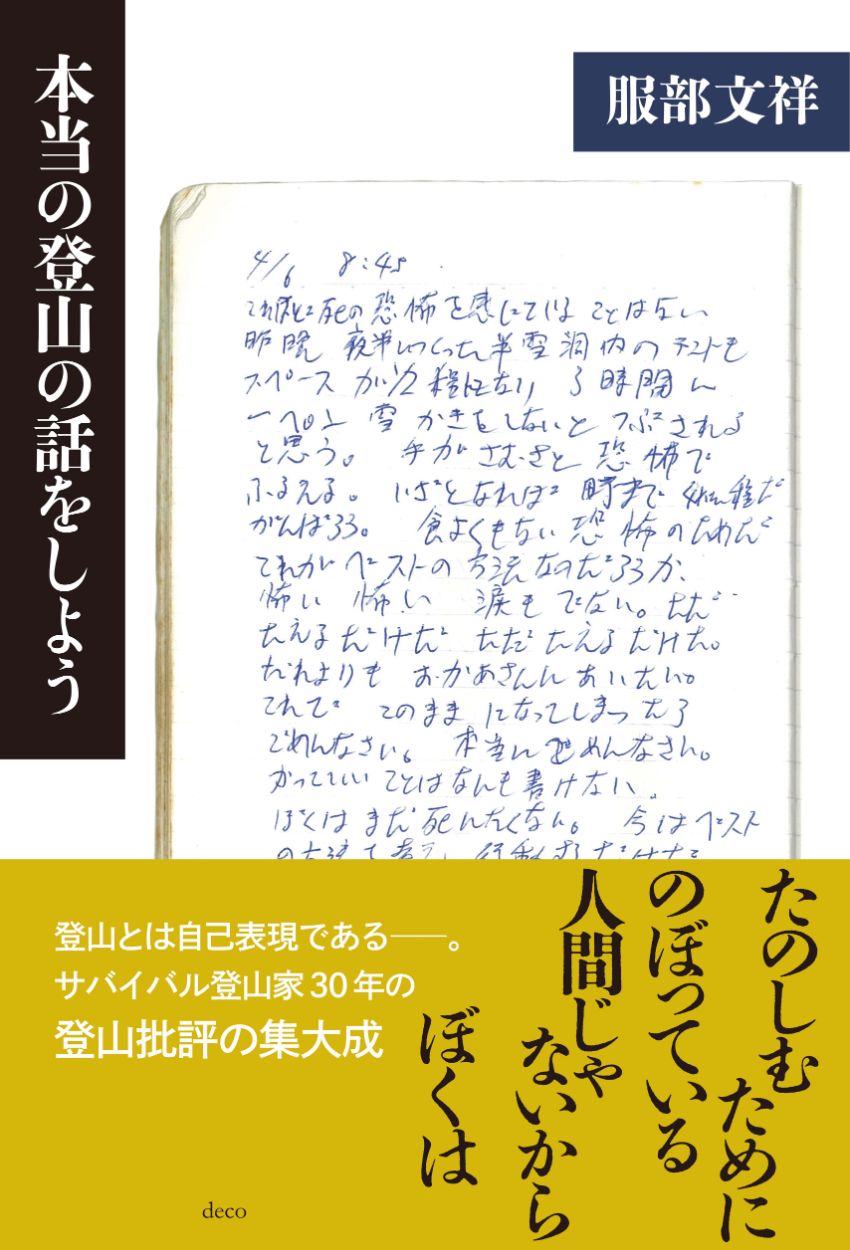 本当の登山の話をしよう
服部文祥
4/6 8:45
これほど死の恐怖を感じていることはない
昨晩 夜半につくった半雪洞内のテントも
スペースが1/2程になり 3時間に
一ぺん 雪かきをしないとつぶされる
と思う。 手がさむさと恐怖で
ふるえる。 いざとなれば 時まで 程だ
がんばろう。 食よくもない 恐怖のためだ
これがベストの方法なのだろうか、
怖い 怖い 涙もでない。ただ
たえるだけだ ただたえるだけだ。
だれよりも おかあさんにあいたい。
これで このままになってしまったら
ごめんなさい。 本当にごめんなさい。
かっていいことはなんも書けない。
ぼくはまだ死にたくない。 今はベスト
たのしむために
のぼっている
人間じゃ
ないから
ぼくは
登山とは自己表現である――。
サバイバル登山家30年の
登山批評の集大成
deco